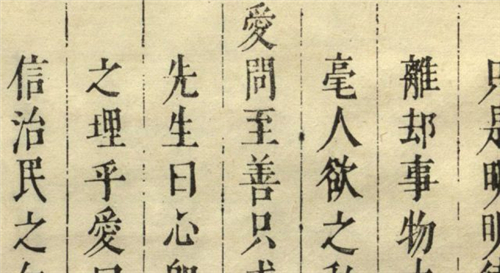 只是明明
離却事物
毫人欲之私
愛問至善只求
先生曰心卽
之理乎愛曰
信治民之